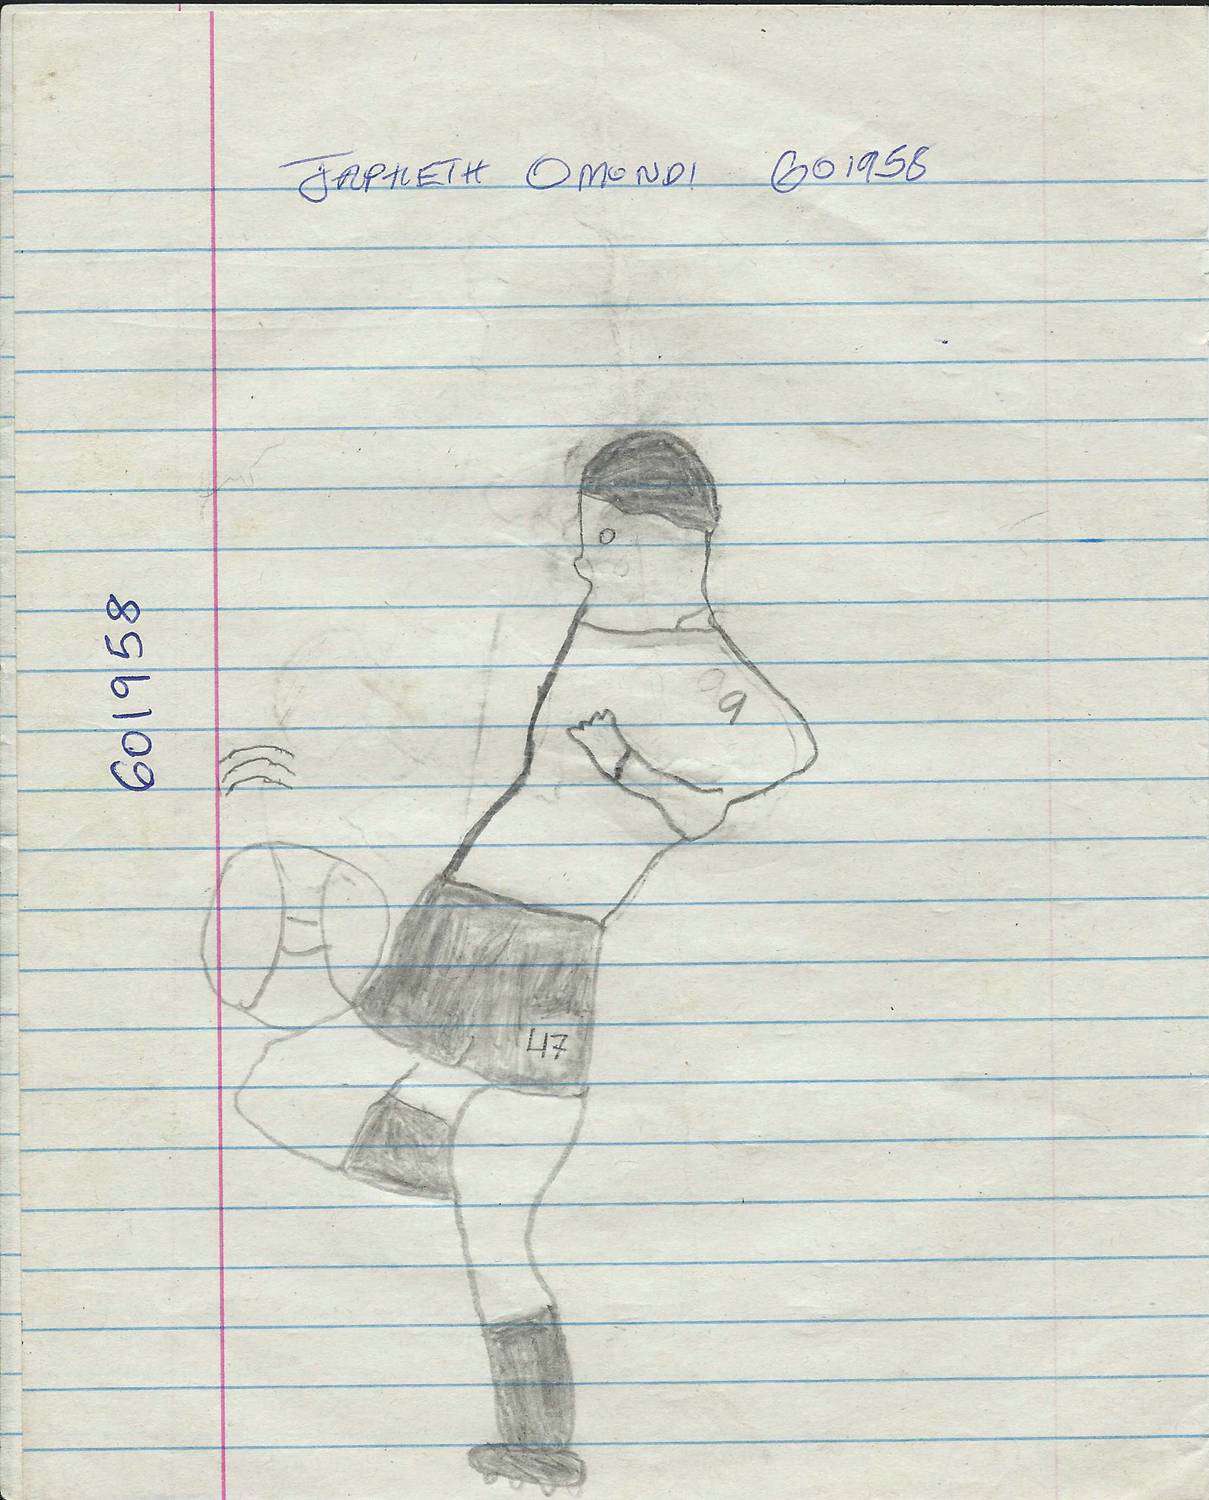 JAPHETH OMONDI 601958
601958
9
47